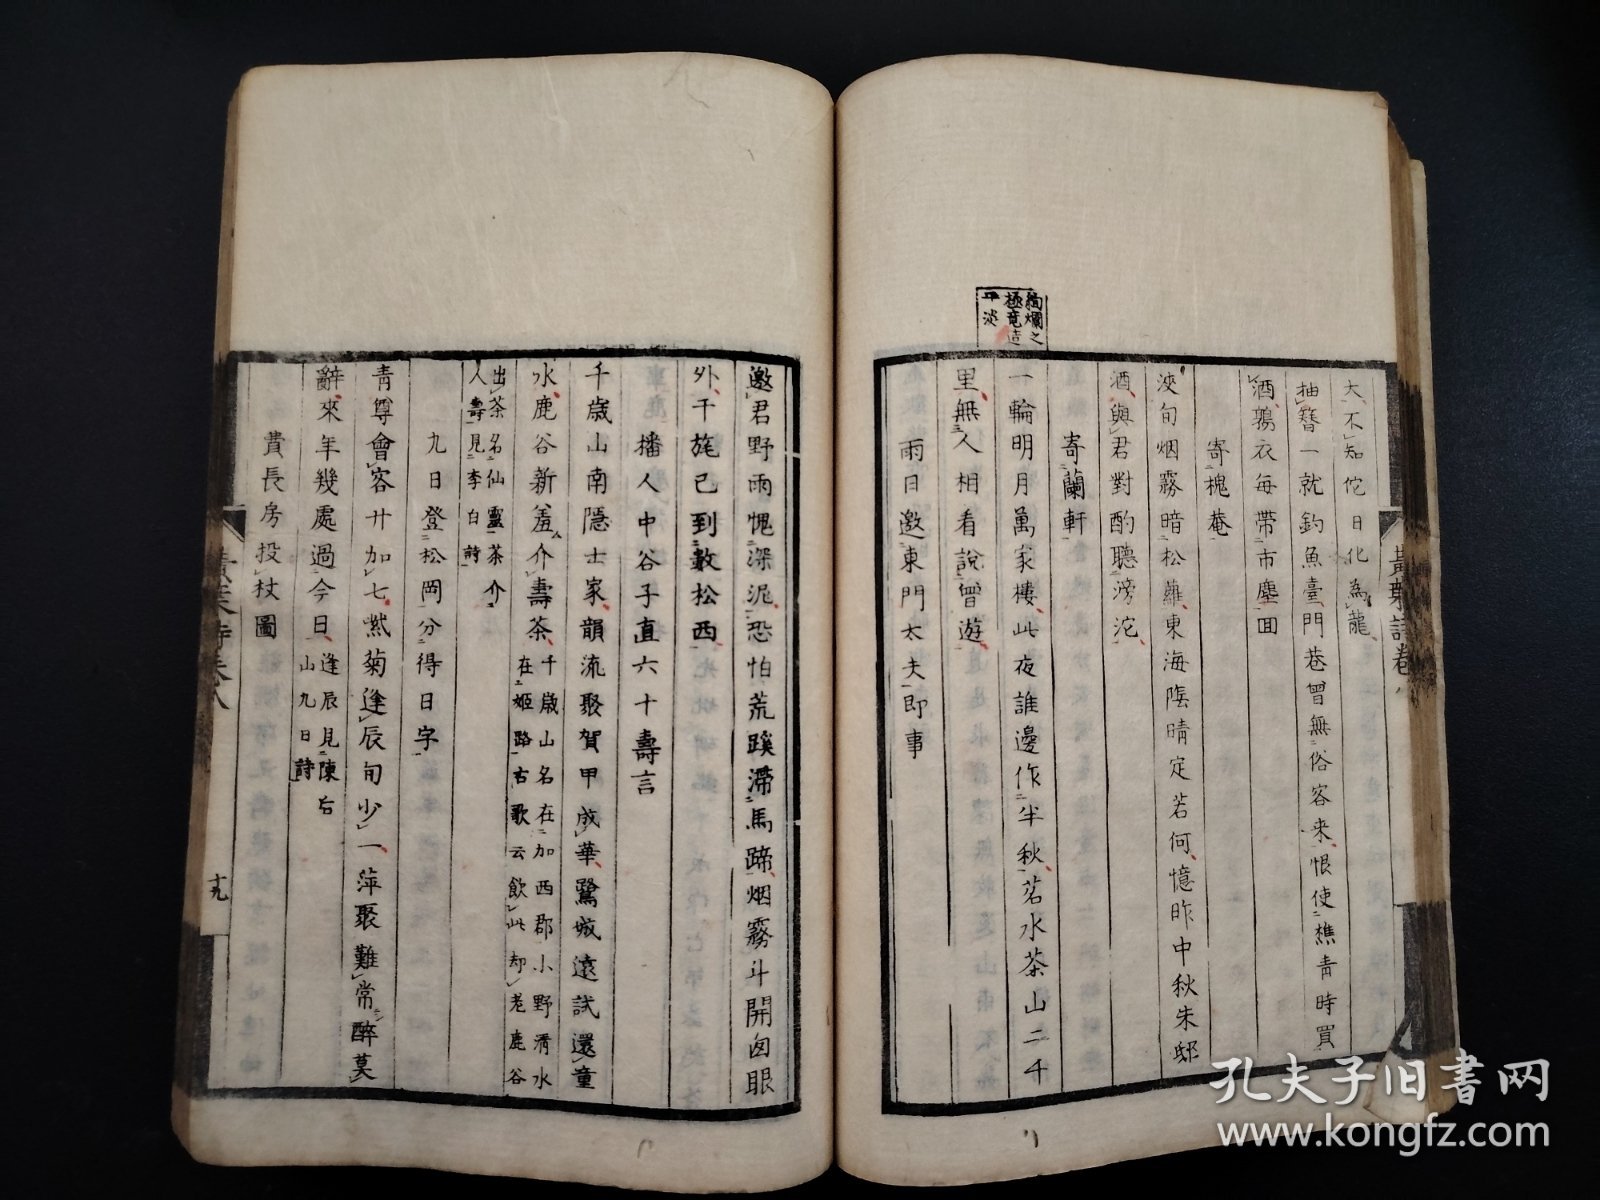 黃葉詩卷八
大不知佗日化為龍
抽簪一就釣魚臺門巷曾無俗客来恨使樵青時買
酒鶉衣每帶市塵囬
寄槐菴
浹旬烟霧暗松蘿東海陰晴定若何憶昨中秋朱邸
酒與君對酌聽滂沱
寄蘭軒
絢爛之
極竟造
平淡
一輪明月萬家樓此夜誰邊作半秋茗水茶山二千
里無人相看說曾遊
雨日邀東門太夫即事
邀君野雨愧深泥恐怕荒蹊滯馬蹄烟霧斗開囱眼
外千旄已到數松西
播人中谷子直六十壽言
千歲山南隱士家韻流聚賀甲成華鷺城遠試還童
水鹿谷新羞介壽茶
千歲山名在加西郡小野淸水
在姬路古歌云飲此却老鹿谷
出茶名仙靈茶介
人壽見李白詩
九日登松岡分得日字
青尊會客廾加七㷊菊逢辰旬少一萍聚難常醉莫
辭来年幾處過今日
逢辰見陳后
山九日詩
費長房投杖圖
黃葉詩卷八
十九
孔夫子旧书网
www.kongfz.com